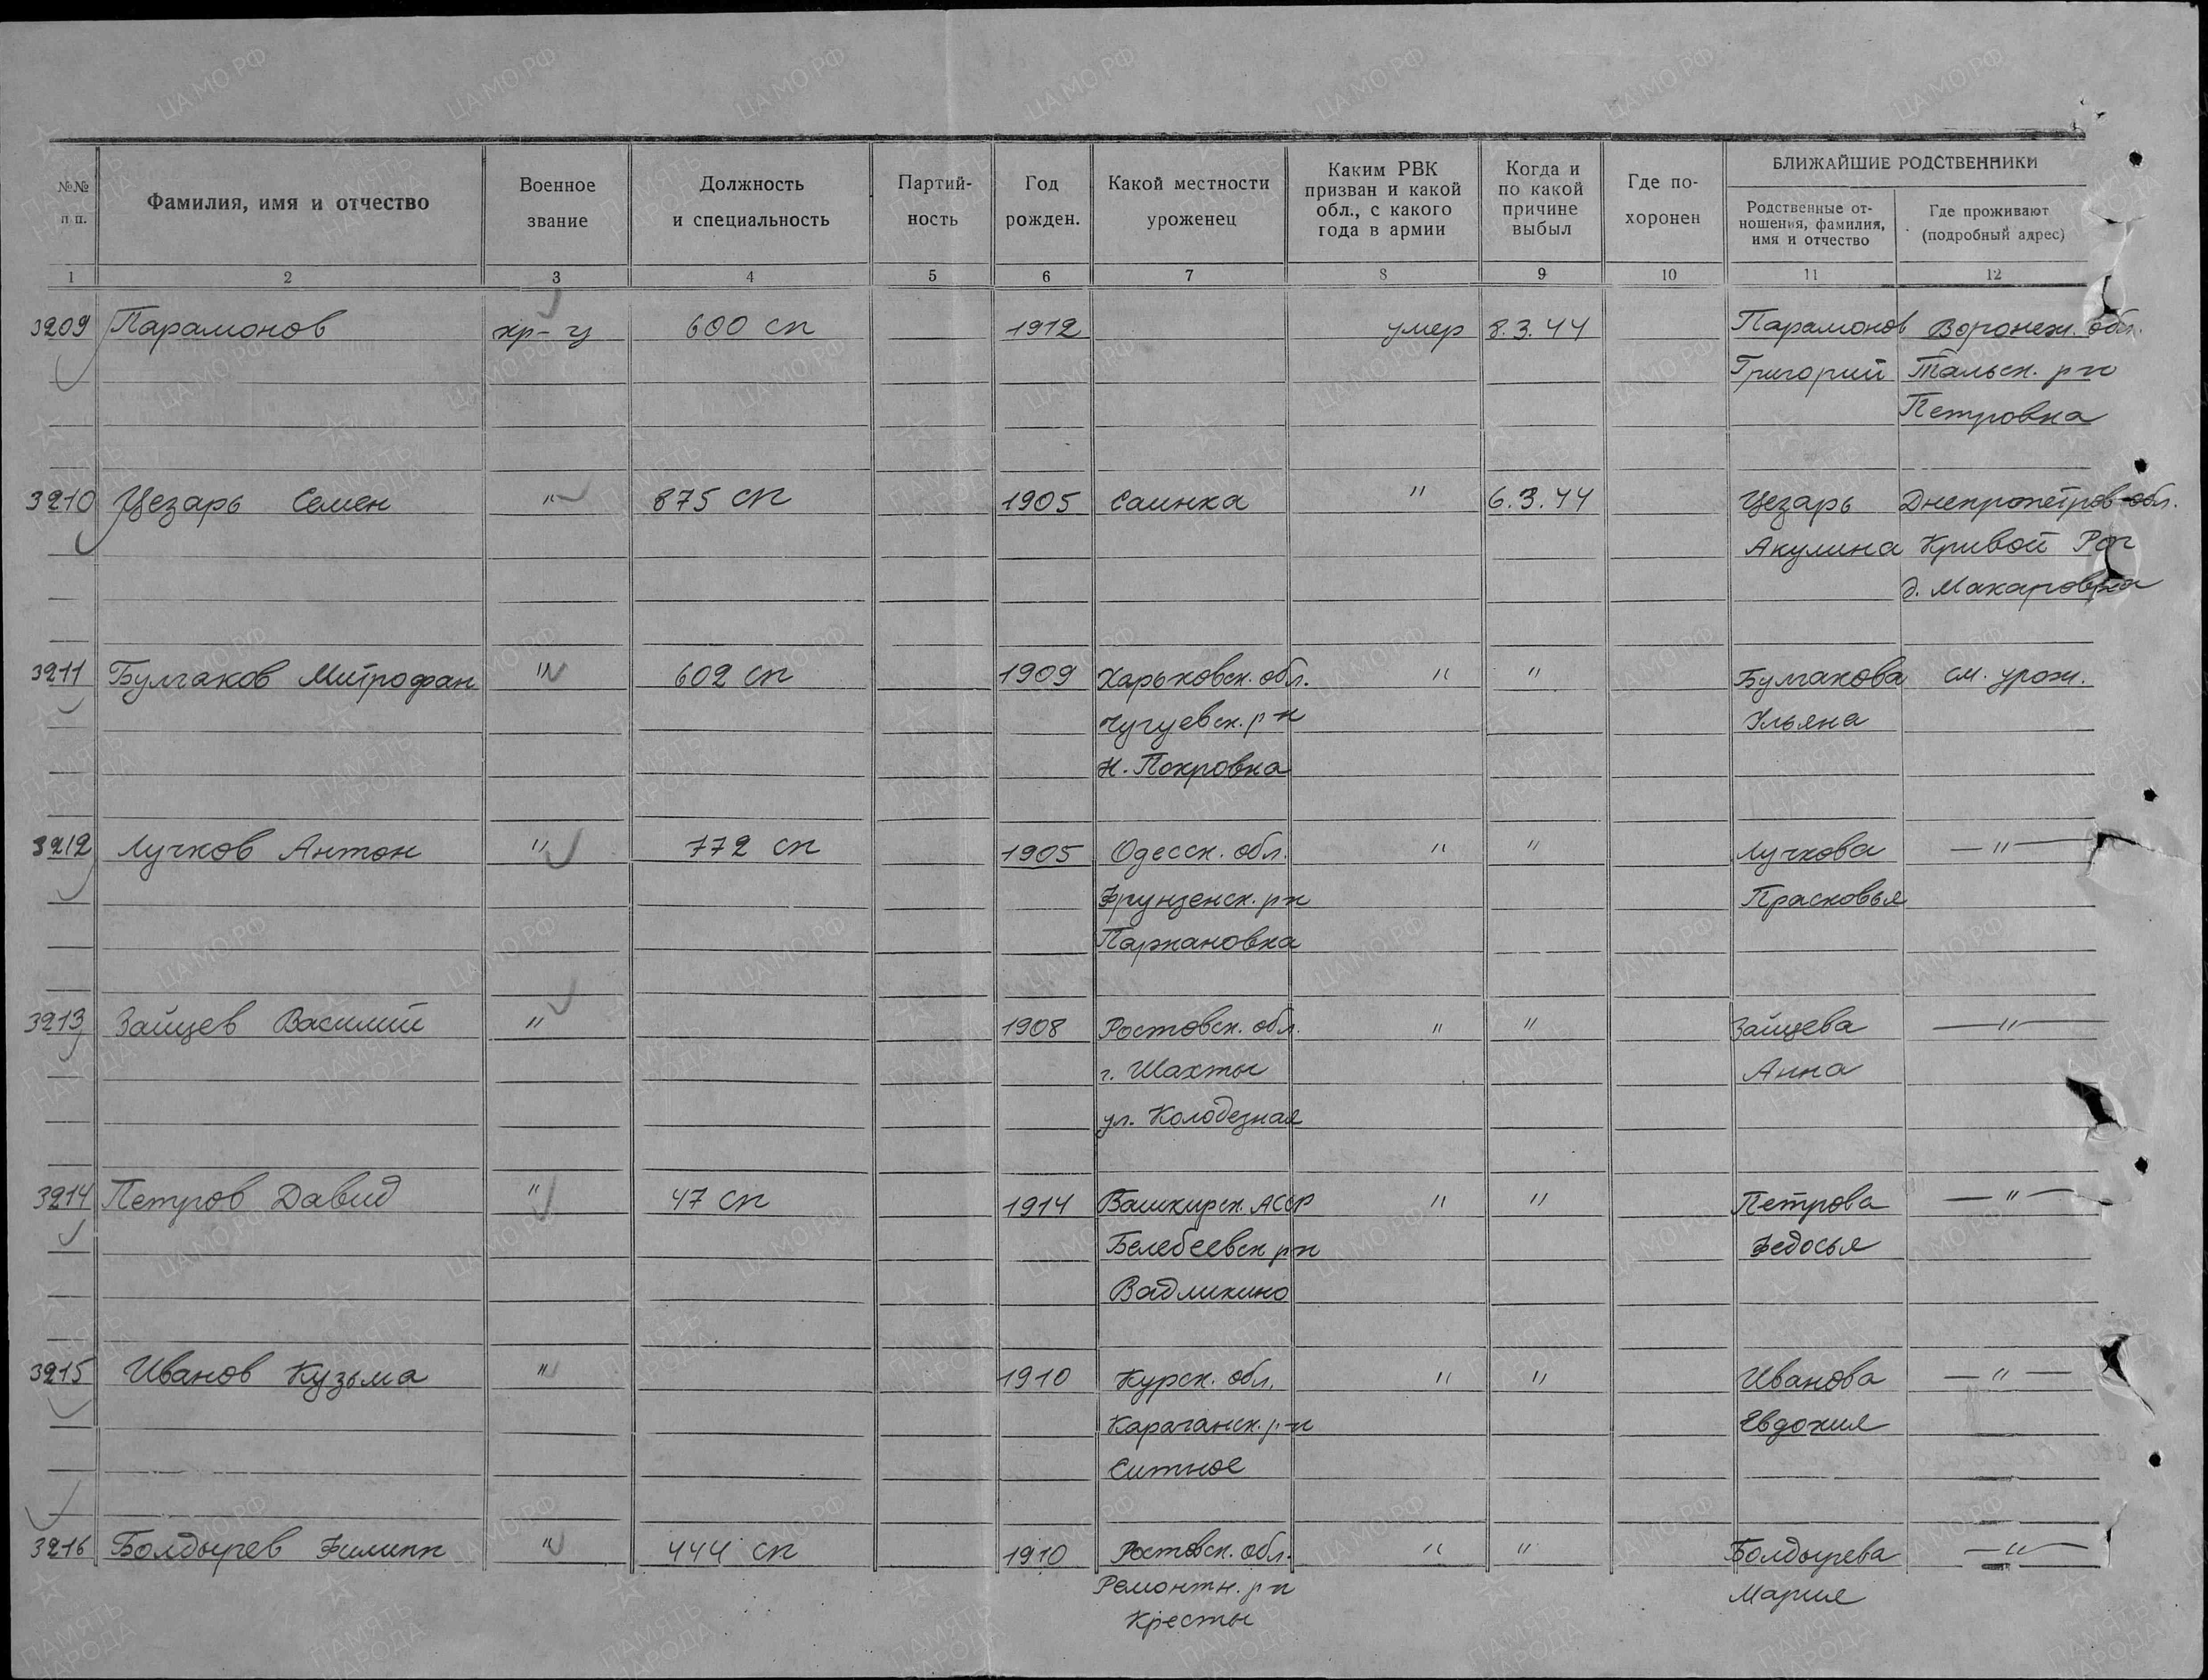 №№ п п.
Фамилия, имя и отчество
Военное звание
Должность и специальность
Партий-ность
Год рожден.
Какой местности уроженец
Каким РВК призван и какой обл., с какого года в армии
Когда и по какой причине выбыл
Где по-хоронен
БЛИЖАЙШИЕ РОДСТВЕННИКИ
Родственные от-ношения, фамилия, имя и отчество
Где проживают (подробный адрес)
1 2 3 4 5 6 7 8 9 10 11 12
3209 Парамонов кр-ц 600 сп 1912 умер 8.3.44 Парамонов Воронеж. обл.
Григорий Тальск. р-н
Петровка
3210 Цезарь Семен " 875 сп 1905 Саинка " 6.3.44 Цезарь Днепропетров обл.
Акулина Кривой Рог
д. Макаровка
3211 Булгаков Митрофан " 602 сп 1909 Харьковск. обл. " " Булгакова см. урож.
Чугуевск. р-н Ульяна
Н. Покровка
3212 Лучков Антон " 772 сп 1905 Одесск. обл. " " Лучкова — " —
Фрунзенск. р-н Прасковья
Паржановка
3213 Зайцев Василий " 1908 Ростовск. обл. " " Зайцева — " —
г. Шахты Анна
ул. Колодезная
3214 Петров Давид " 47 сп 1914 Башкирск. АССР " " Петрова — " —
Белебеевск р-н Федосья
Вадликино
3215 Иванов Кузьма " 1910 Курск. обл. " " Иванова — " —
Карачанск. р-н Евдокия
Ситное
3216 Болдырев Филипп " 444 сп 1910 Ростовск. обл. " " Болдырева — " —
Ремонтн. р-н Мария
Кресты